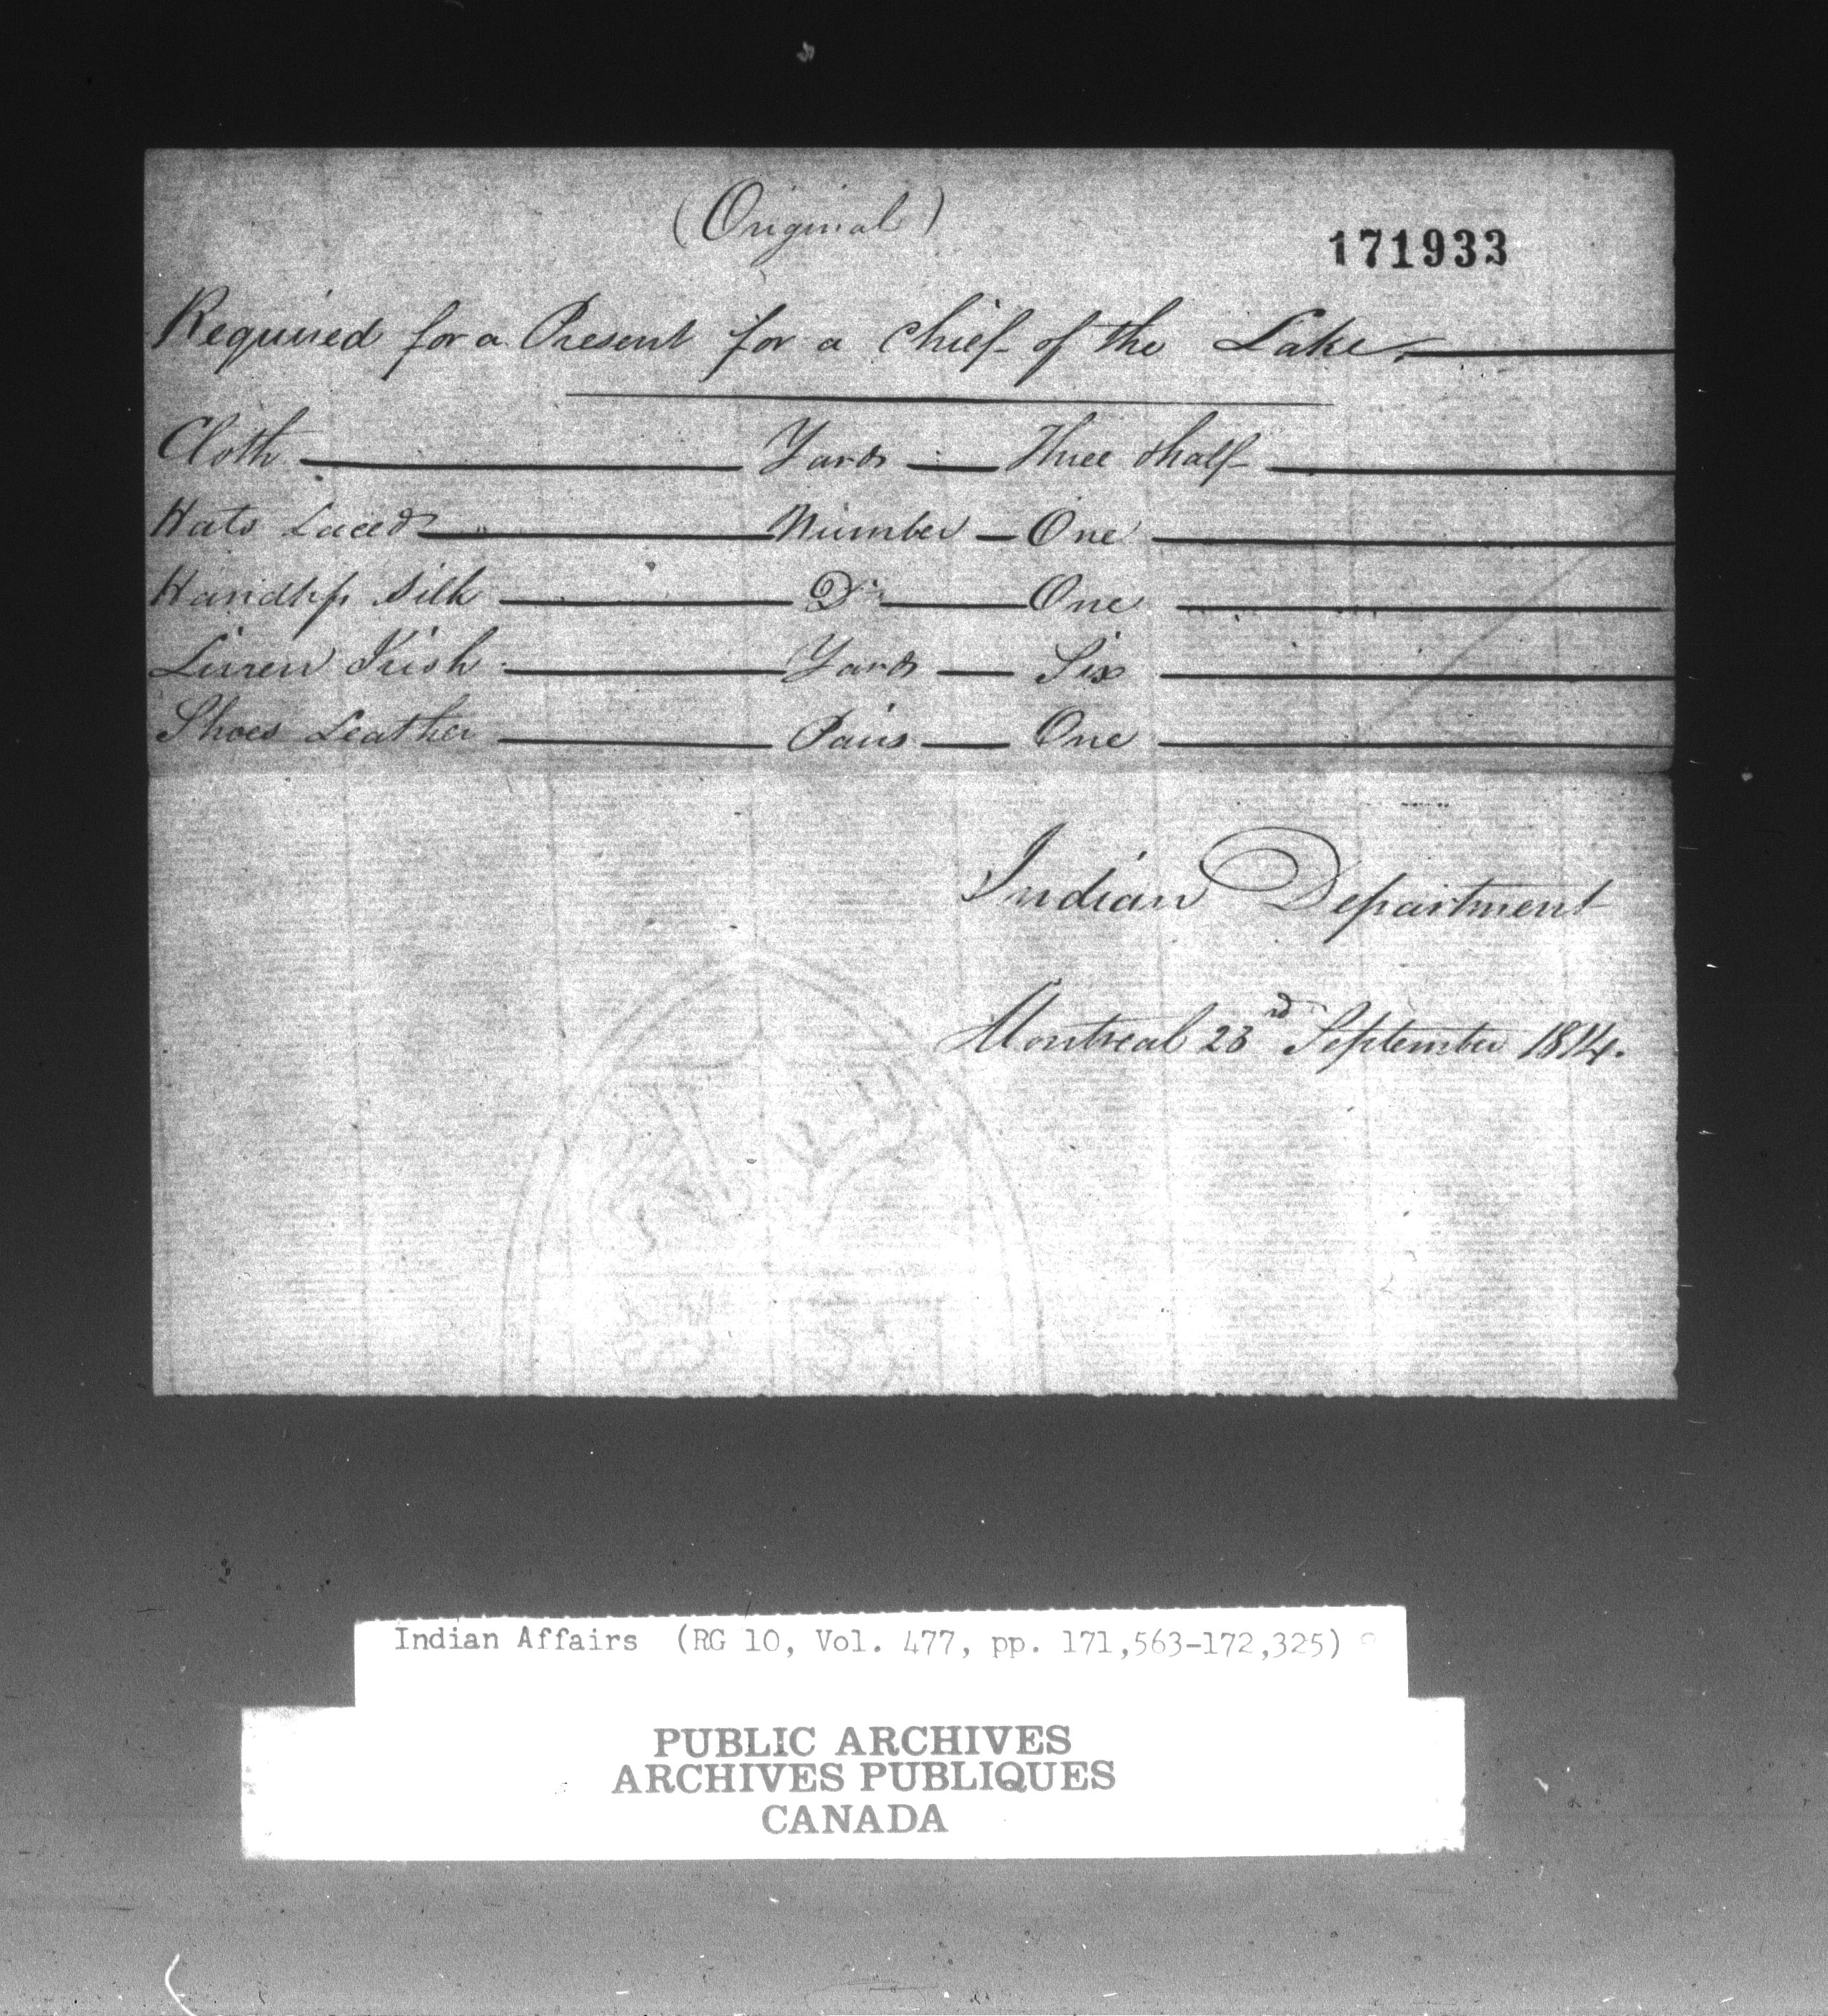 (Original)
171933
Required for a Present for a Chief of the Lake.
Cloth Yards Three &half
Hats Laced Number One
Handkfs Silk Do One
Linen Irish Yards Six
Shoes Leather Pairs One
Indian Department
Montreal 23rd September 1814.
Indian Affairs (RG 10, Vol. 477, pp. 171,563-172,325)
PUBLIC ARCHIVES
ARCHIVES PUBLIQUES
CANADA